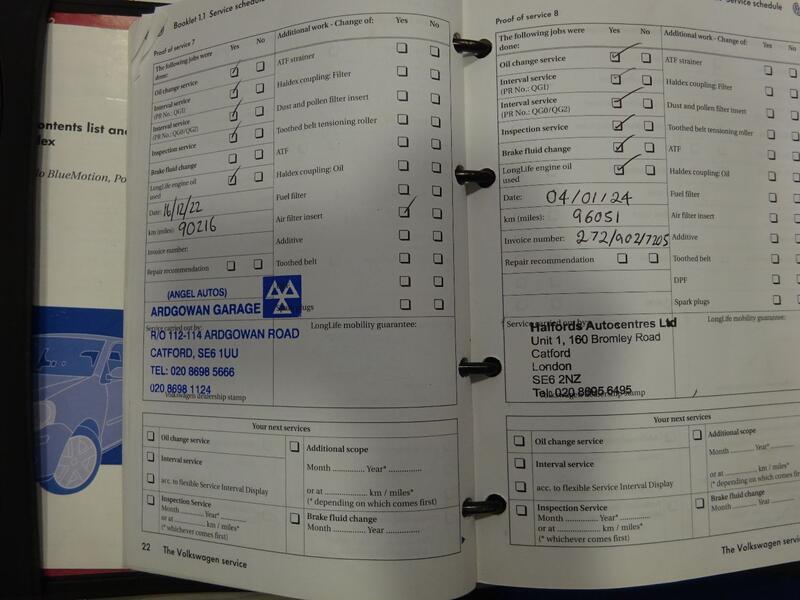 ontents list and
dex
lo BlueMotion, Po
Booklet 1.1 Service schedule
Proof of service 7
The following jobs were done:
Yes No
Oil change service
Interval service
(PR No.: QG1)
Interval service
(PR No.: QG0/QG2)
Inspection service
Brake fluid change
LongLife engine oil
used
Date: 16/12/22
km (miles): 90216
Invoice number:
Repair recommendation
Additional work - Change of: Yes No
ATF strainer
Haldex coupling: Filter
Dust and pollen filter insert
Toothed belt tensioning roller
ATF
Haldex coupling: Oil
Fuel filter
Air filter insert
Additive
Toothed belt
plugs
(ANGEL AUTOS)
ARDGOWAN GARAGE
Service carried out by:
R/O 112-114 ARDGOWAN ROAD
CATFORD, SE6 1UU
TEL: 020 8698 5666
020 8698 1124
Volkswagen dealership stamp
LongLife mobility guarantee:
Your next services
Oil change service
Interval service
acc. to flexible Service Interval Display
Inspection Service
Month ............ Year* ............
or at ............ km / miles*
(* whichever comes first)
Additional scope
Month ............ Year* ............
or at ............ km / miles*
(* depending on which comes first)
Brake fluid change
Month ............ Year ............
22 The Volkswagen service
Service schedule
Proof of service 8
The following jobs were
done:
Yes No
Oil change service
Interval service
(PR No.: QG1)
Interval service
(PR No.: QG0/QG2)
Inspection service
Brake fluid change
LongLife engine oil
used
Date: 04/01/24
km (miles): 96051
Invoice number: 272/902/7205
Repair recommendation
Additional work - Change of: Yes No
ATF strainer
Haldex coupling: Filter
Dust and pollen filter insert
Toothed belt tensioning roller
ATF
Haldex coupling: Oil
Fuel filter
Air filter insert
Additive
Toothed belt
DPF
Spark plugs
Service carried out by:
Halfords Autocentres Ltd
Unit 1, 160 Bromley Road
Catford
London
SE6 2NZ
Tel: 020 8695 6495
Volkswagen dealership stamp
LongLife mobility guarantee:
Your next services
Oil change service
Interval service
acc. to flexible Service Interval Display
Inspection Service
Month ............ Year* ............
or at ............ km / miles*
(* whichever comes first)
Additional scope
Month ............ Year* ............
or at ............ km / miles*
(* depending on which comes first)
Brake fluid change
Month ............ Year ............
The Volkswagen service